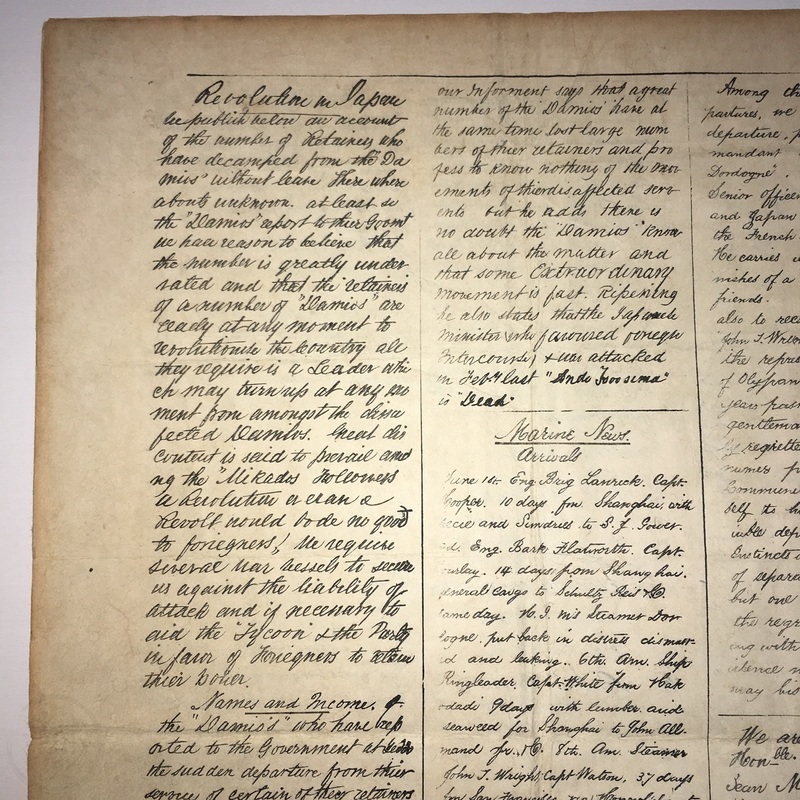 Revolution in Japan
We publish below an account
of the number of Retainers who
have decamped from the "Da
mios" without leave there where
abouts unknown. at least so
the "Damios" report to thier Govmt
we have reason to believe that
the number is greatly under
rated and that the retainers
of a number of "Damios" are
ready at any moment to
revolutionise the Country all
they require is a Leader whi
ch may turn up at any mo
ment from amongst the disaf
fected Damios. Great dis
content is said to prevail amo
ng the "Mikedos Followers
a Revolution or even a
Revolt would bode no good
to foriegners! We require
several War Vessels to secure
us against the liability of
attack and if necessary to
aid the Tycoon & the Party
in favor of Foriegners to retain
thier Power.
Names and Income, of
the "Damio's" who have rep
orted to the Government at
the sudden departure from thier
service of certain of their retainers
our Informent says that a great
number of the "Damios" have at
the same time lost large num
bers of thier retainers and pro
fess to know nothing of the mov
ements of thier disaffected serv
ents but he adds there is
no doubt the "Damios" know
all about the matter and
that some Extraordinary
movement is fast Ripening
he also states that the Japanese
Minister who favoured foreign
Intercourse, & was attacked
in Feby last "Ando Tsoosima"
is "Dead"
Marine News.
Arrivals
June 1st. Eng Brig Lanrick. Capt.
Cooper. 10 days fm Shanghai with
and Sundries to S. J. Gower.
Eng. Bark Flatworth. Capt.
14 days from Shanghai.
general cargo to Schultz Reis & Co
same day. H. I. M's Steamer Dor
dogne, put back in distress dismast
ed and leaking. 6th. Am. Ship
Ringleader, Capt. White from Hak
odadi 9 days with lumber and
seaweed for Shanghai to John All
mand jr. & Co. 8th. Am. Steamer
John T. Wright, Capt Watson, 37 days
fm San Francisco via Honolulu
Among
partures, we
departure,
mandant
Dordogne".
Senior officer
and Japan
the French
He carries
wishes of a
friends.
also to
John T. Wright
the
of Olyphan
years
gentleman
regrette
numers
Communi
self to
Extincts
of separa
but one
the regr
ing with
may his
We are
Honble.
Jean M